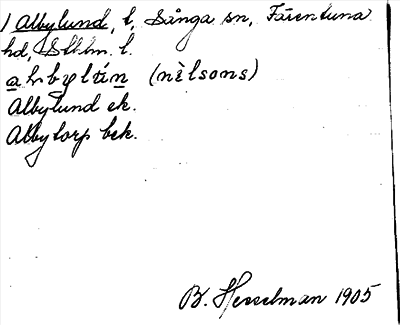 1 Albylund, l, Sånga sn, Färentuna
hd, Sthlm. l.
(nìlsons)
Albylund ek.
Albytorp bek.
B. Hesselman 1905